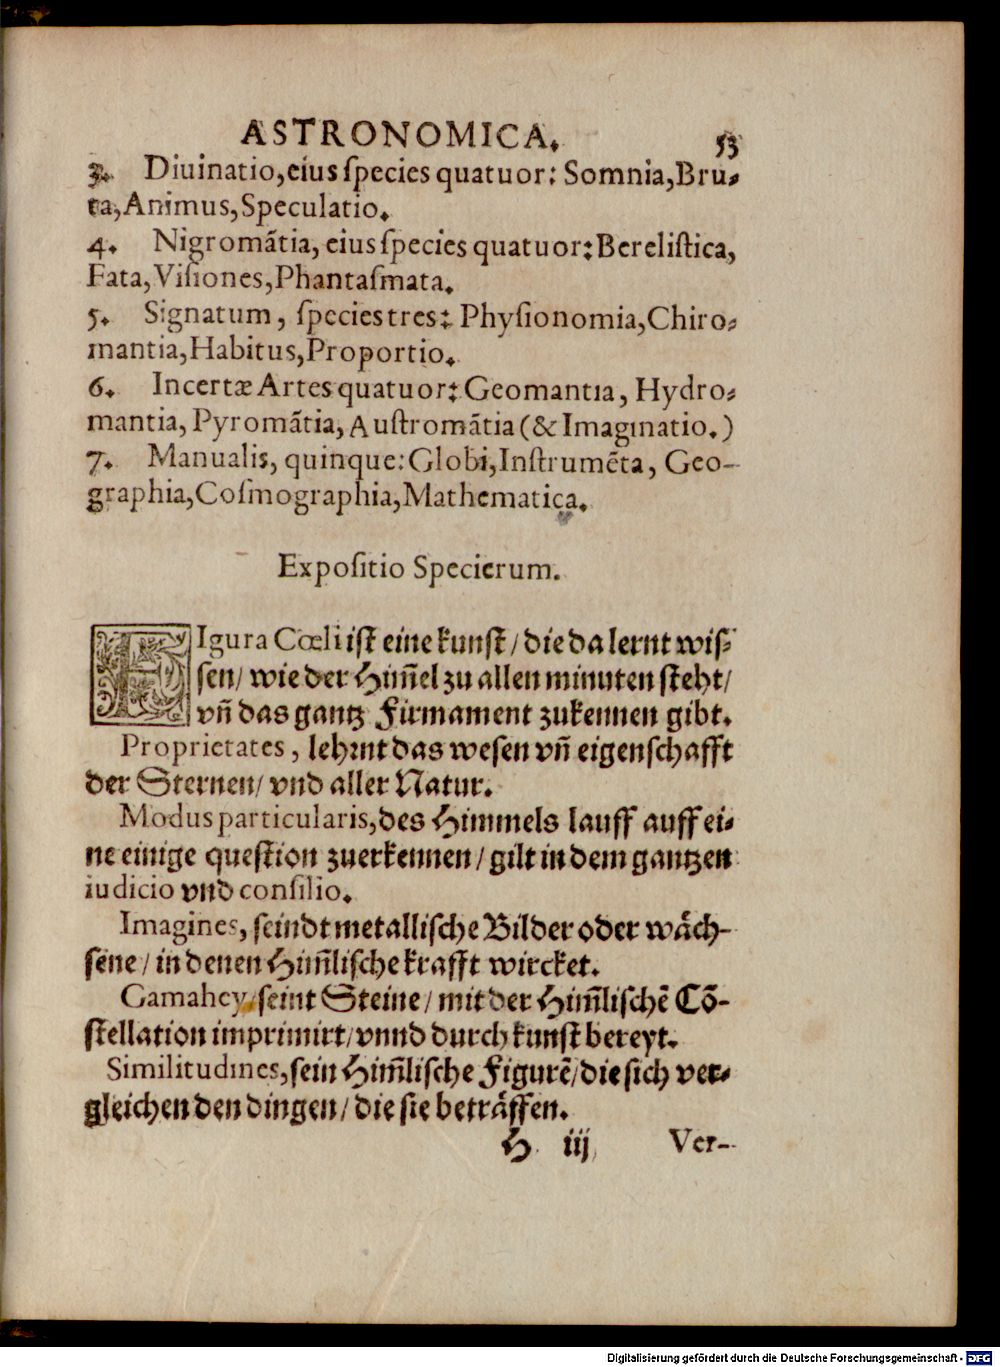 ASTRONOMICA. 53
3. Diuinatio, eius ſpecies quatuor: Somnia, Bru⸗
ta, Animus, Speculatio.
4. Nigromãtia, eius ſpecies quatuor: Bereliſtica,
Fata, Viſiones, Phantaſmata.
5. Signatum, ſpecies tres: Phyſionomia, Chiro⸗
mantia, Habitus, Proportio.
6. Incertæ Artes quatuor: Geomantia, Hydro⸗
mantia, Pyromãtia, Auſtromãtia (& Imaginatio.)
7. Manualis, quinque: Globi, Inſtrumẽta, Geo-
graphia, Coſmographia, Mathematica.
Expoſitio Specierum.
FIgura Cœli iſt eine kunſt / die da lernt wiſ⸗
ſen / wie der Him̃el zu allen minuten ſteht /
vñ das gantz Firmament zukennen gibt.
Proprietates, lehrnt das weſen vñ eigenſchafft
der Sternen / vnd aller Natur.
Modus particularis, des Himmels lauff auff ei⸗
ne einige queſtion zuerkennen / gilt in dem gantzen
iudicio vnd conſilio.
Imagines, ſeindt metalliſche Bilder oder wåch-
ſene / in denen Him̃liſche krafft wircket.
Gamahey / ſeint Steine / mit der Him̃liſchẽ Cõ-
ſtellation imprimirt / vnnd durch kunſt bereyt.
Similitudines, ſein Him̃liſche Figurẽ / die ſich ver⸗
gleichen den dingen / die ſie betråffen.
H iij Ver-
Digitalisierung gefördert durch die Deutsche Forschungsgemeinschaft - DFG